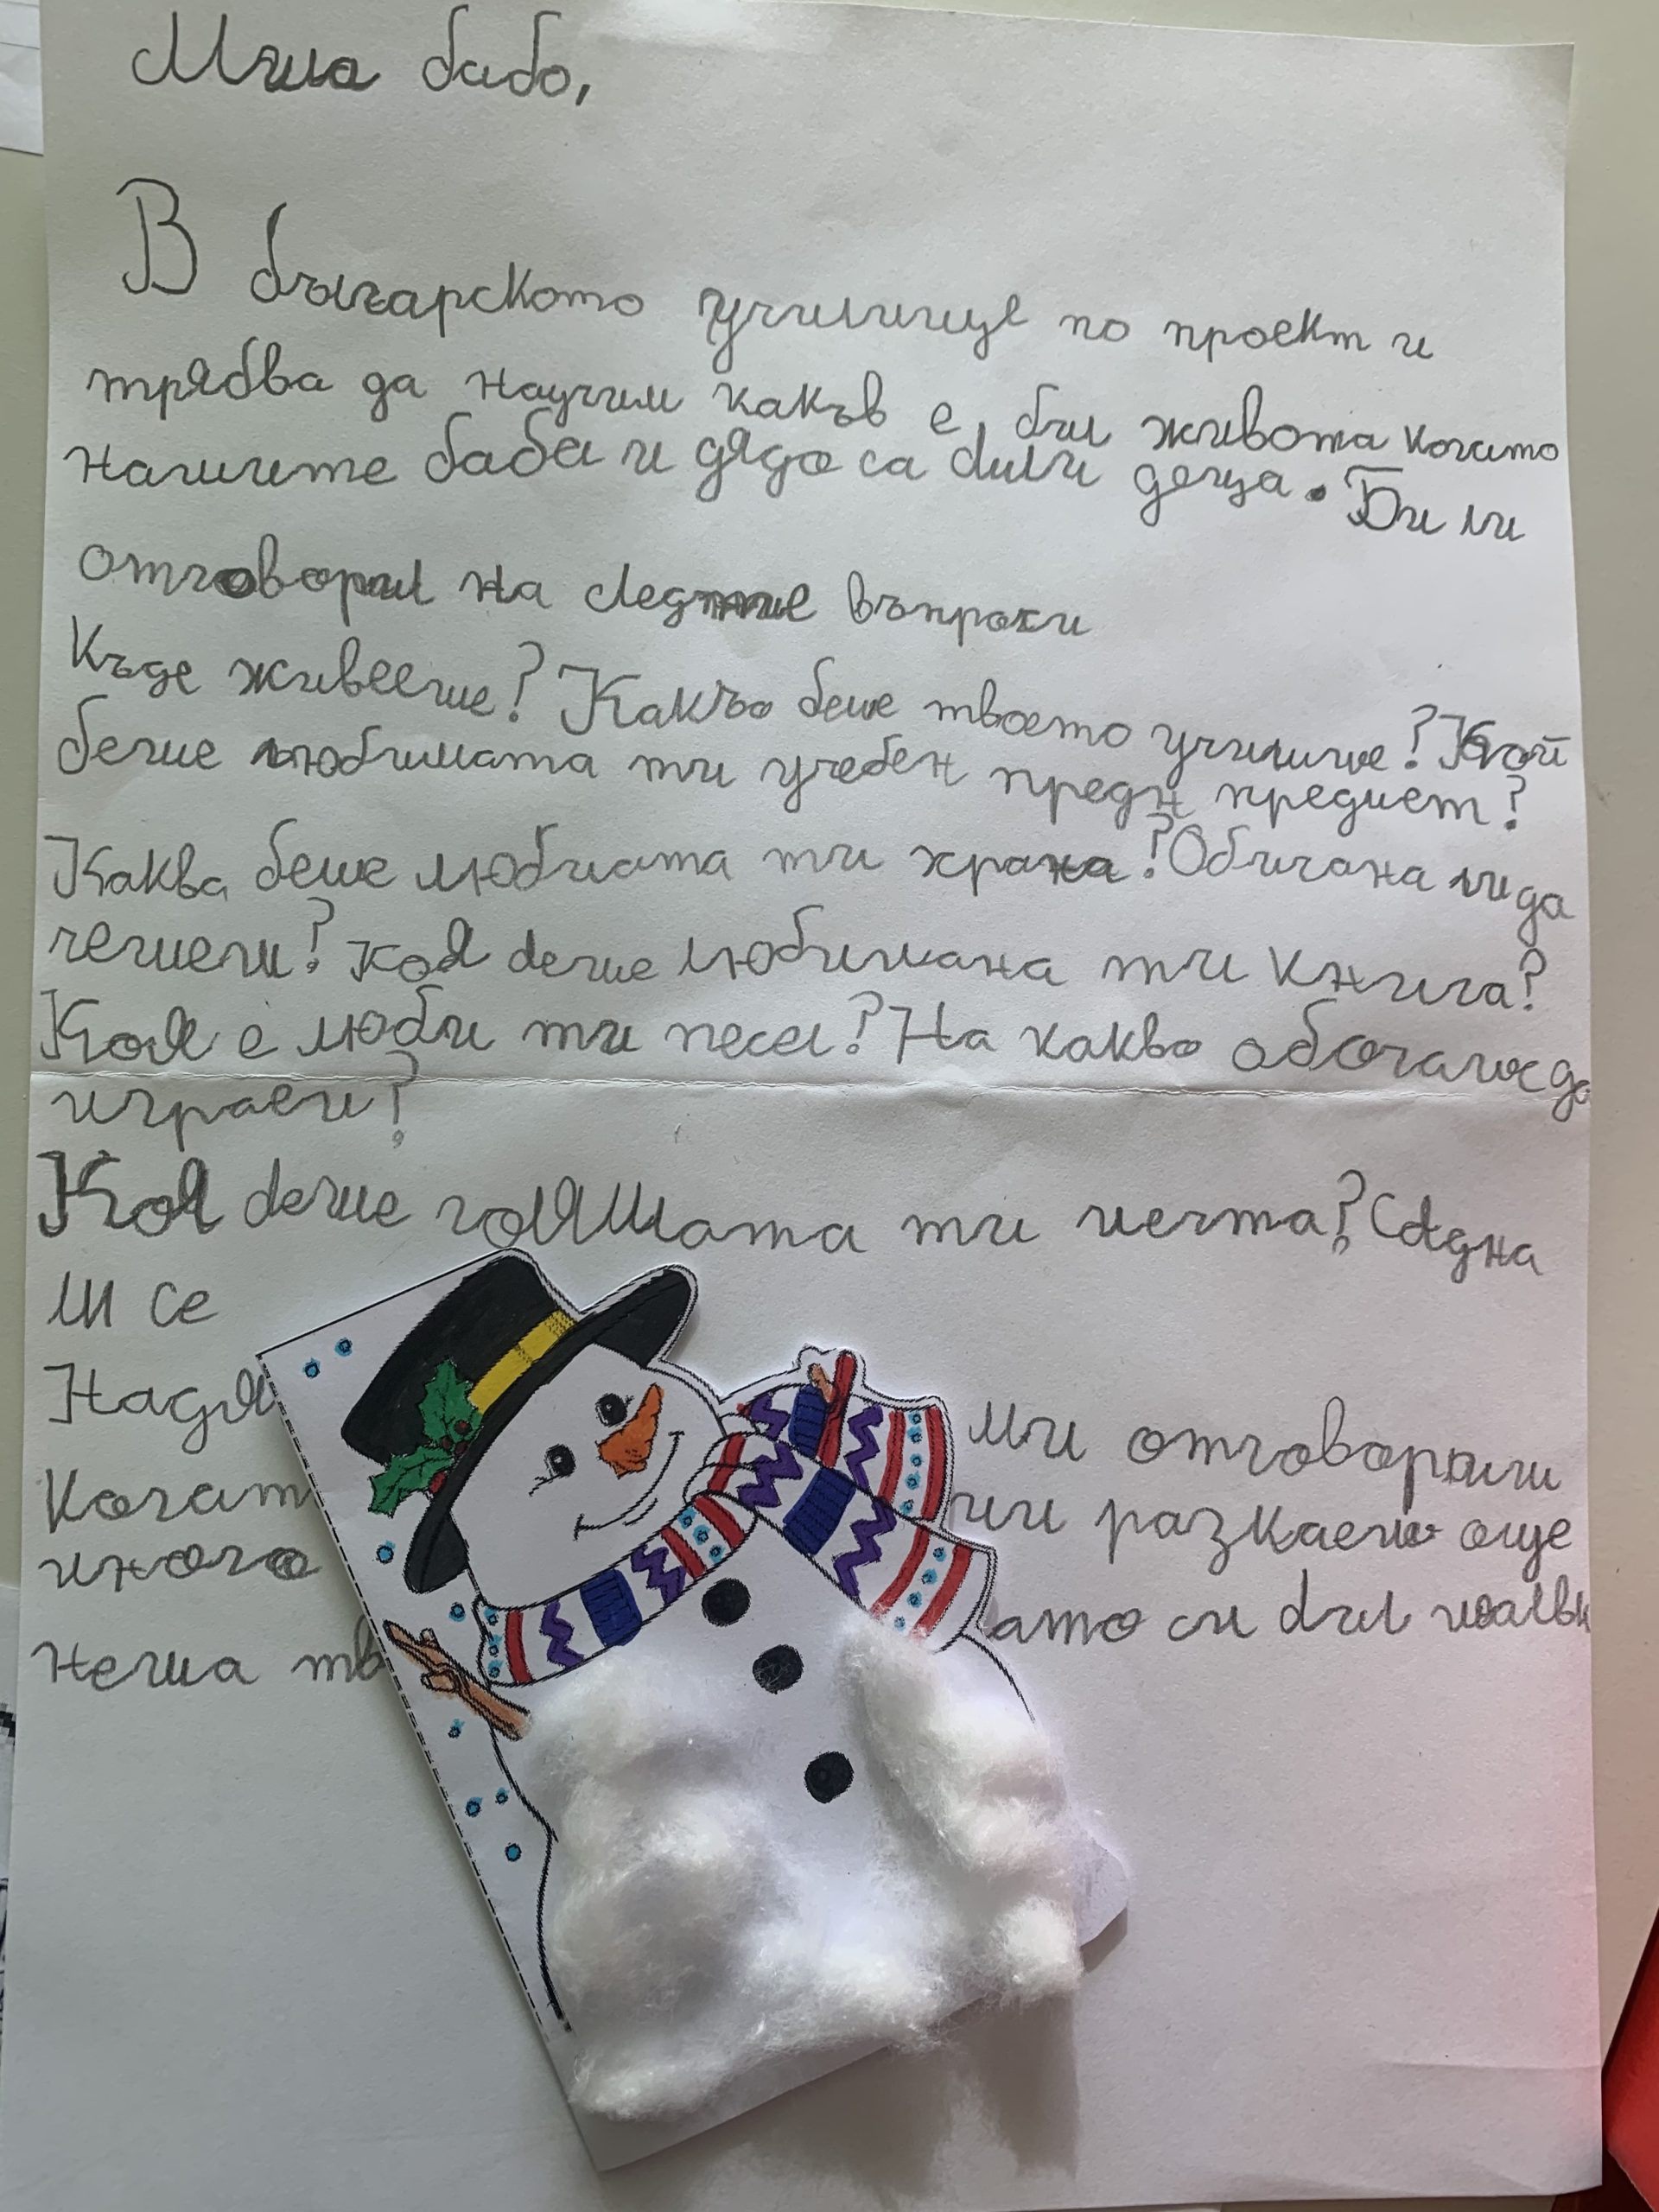 Мила бабо,
В българското училище по проект и
трябва да научим какъв е бил живота когато
нашите баби и дядо са били деца. Би ли
отговорил на следние въпроси
Къде живееше? Какъо беше твоето училище? Кой
беше любимата ти учебен предн предмет?
Каква беше любимата ти храна? Обичана ли да
четеш? Коя беше любимана ти книга?
Коя е люби ти песен? На какво обочаше да
играеш?
Коя беше голямата ти мечта? Сбъдна
ли се
Надя ми отговорили
Когат ми разкаеш още
много
неша тв ато си бил малък